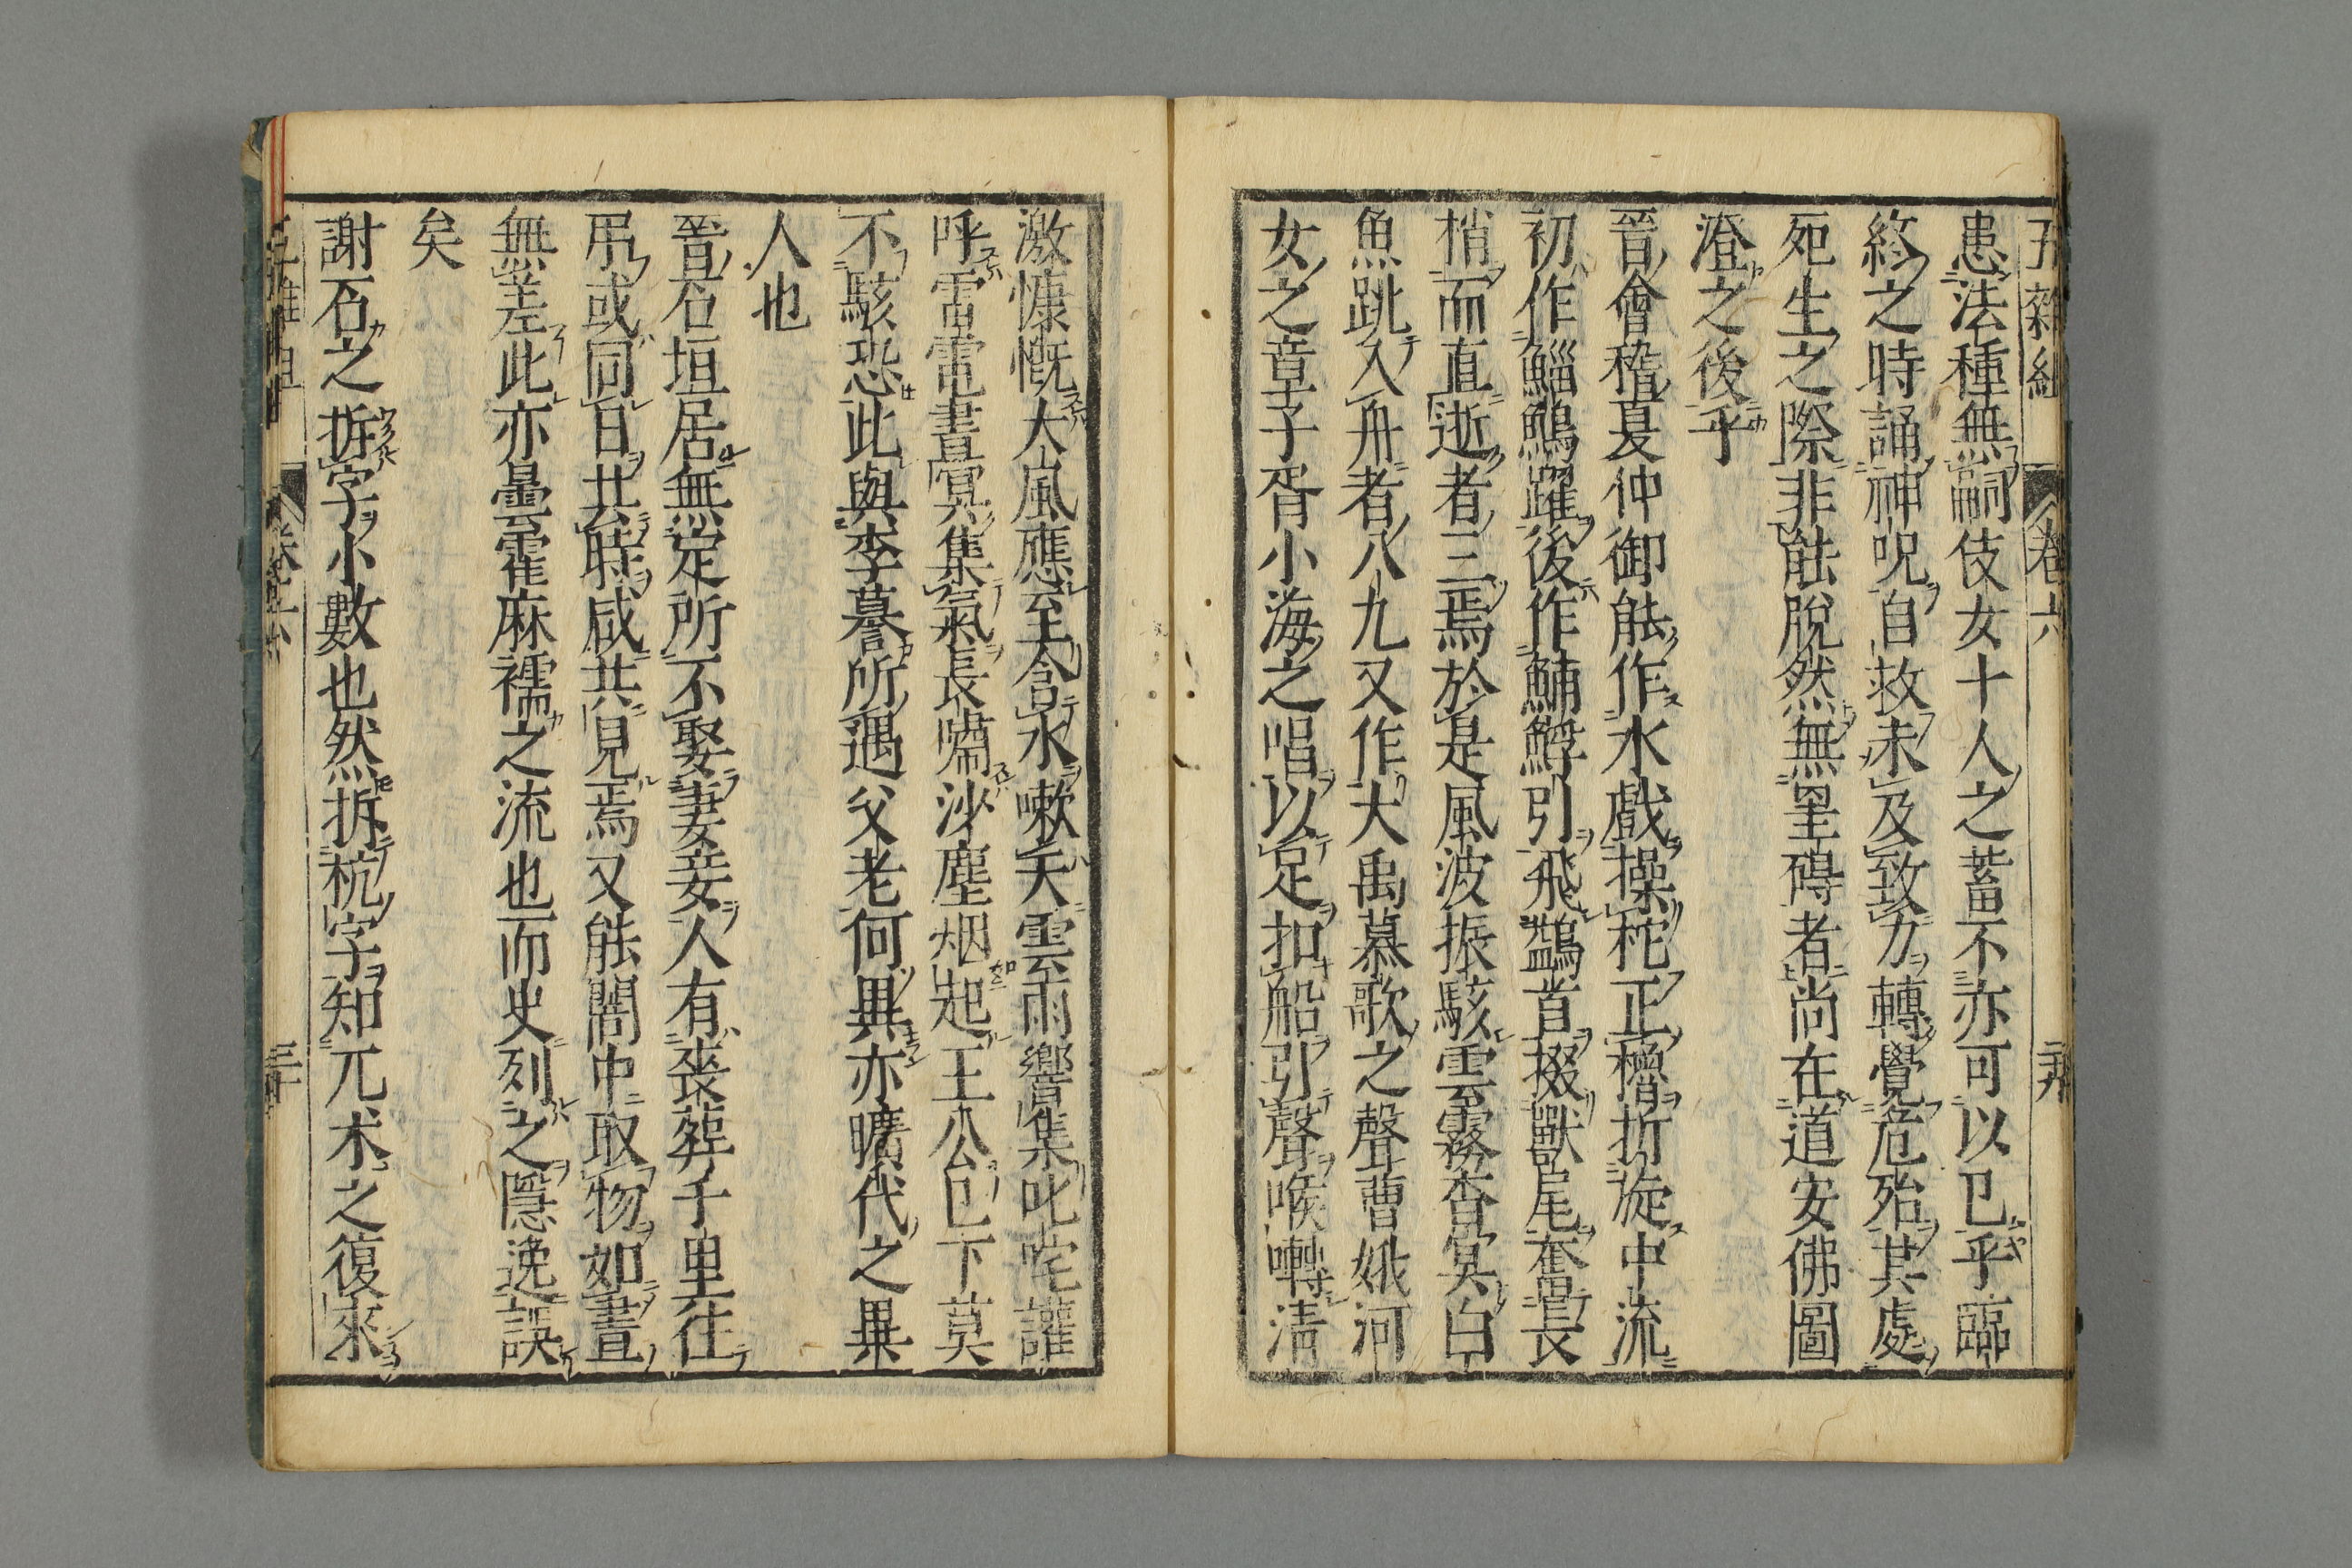 五雜組 卷六 二十九
患法種無嗣伎女十人之蓄不亦可以已乎臨
終之時誦神呪自救未及致力轉覺危殆其處
死生之際非能脫然無罣碍者尚在道安佛圖
澄之後乎
晉會稽夏仲御能作水戲操柁正櫓折旋中流
初作鯔鷠躍後作鯆䱐引飛鷁首掇獸尾奮長
梢而直逝者三焉於是風波振駭雲霧杳冥白
魚跳入舟者八九又作大禹慕歌之聲曹娥河
女之章子胥小海之唱以足扣船引聲喉囀清
激慷慨大風應至含水嗽天雲雨響集叱咤讙
呼雷電晝冥集氣長嘯沙塵烟起王公已下莫
不駭恐此與李謩所遇父老何異亦曠代之異
人也
晉石垣居無定所不娶妻妾人有喪葬千里往
弔或同日共時咸共見焉又能闇中取物如晝
無差此亦曇霍麻襦之流也而史列之隱逸誤
矣
謝石之拆字小數也然拆杭字知兀朮之復來
卷六 三十